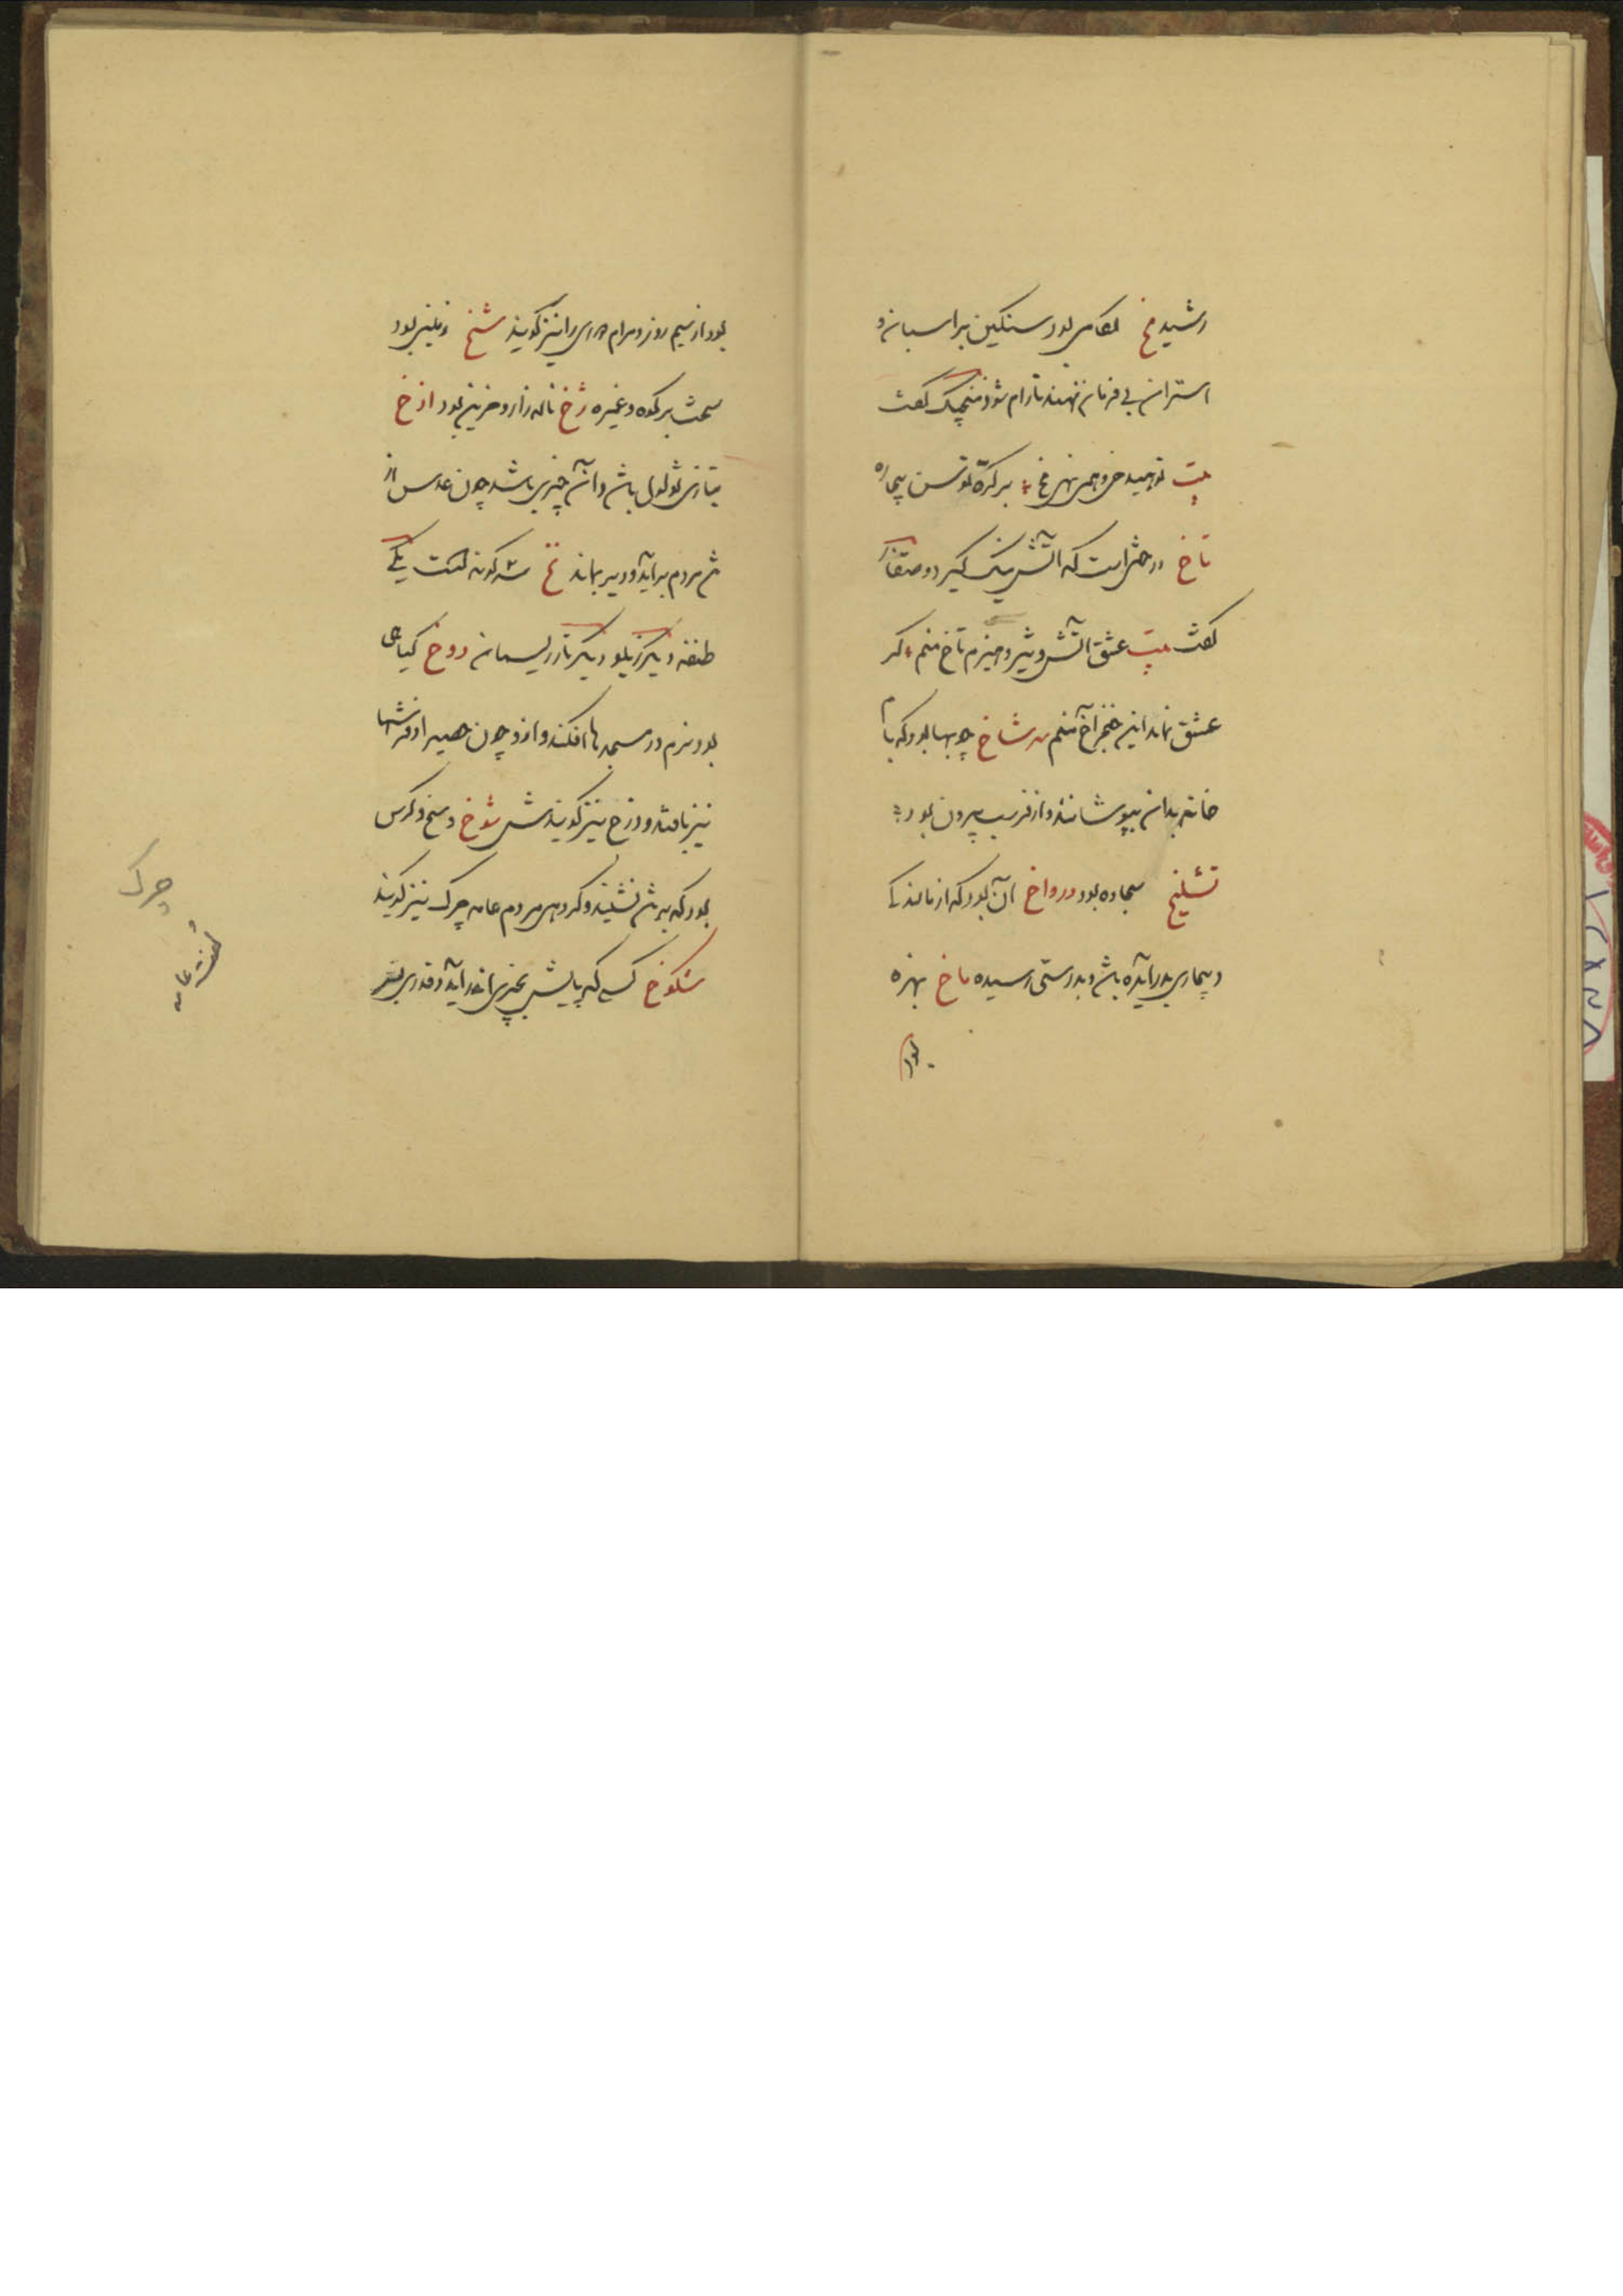 رشید مخ لکامی بود سنگین بر اسبان و
استران بی فرمان نهند تا رام شود منجیک گفت
بیت تو همی نهی مخ بر کره توسن بیماره
تاخ درختی است که آتش نیک گیرد و
گفت بیت عشق آتش تیز و هیزم تاخ منم گر
عشق نماند این خنجر آخ منم شاخ چوبها بود که بام
خانه بدان بپوشانند و از فرسب بیرون بود
تشلیخ سجاده بود درواخ آن بود که از نالندگی
و بیماری بدر آیده باشد و بدرستی رسیده ماخ بهره
بود
بود از سیم روز و مرام را نیز گویند شخ زمین بود
سخت بر کوه و غیره زخ ناله زار و حزین بود ازخ
بتازی ثولول باشد و آن چیزی باشد چون عدس از
تن مردم برآید و دیر بماند نخ سه گونه است یکی
طنفسه دیگر زیلو دیگر تار ریسمان دوخ گیاهی
بود نرم در مسجدها افکنند و ازو چون حصیر و فرشها
نیز بافند و رخ نیز گویندش شوخ وسخ و کرس
بود که بر تن نشیند و گروهی مردم عامه چرک نیز گویند
شکوخ کسی که پایش بچیزی اندر آید و قدری
چرک
لغت عامه